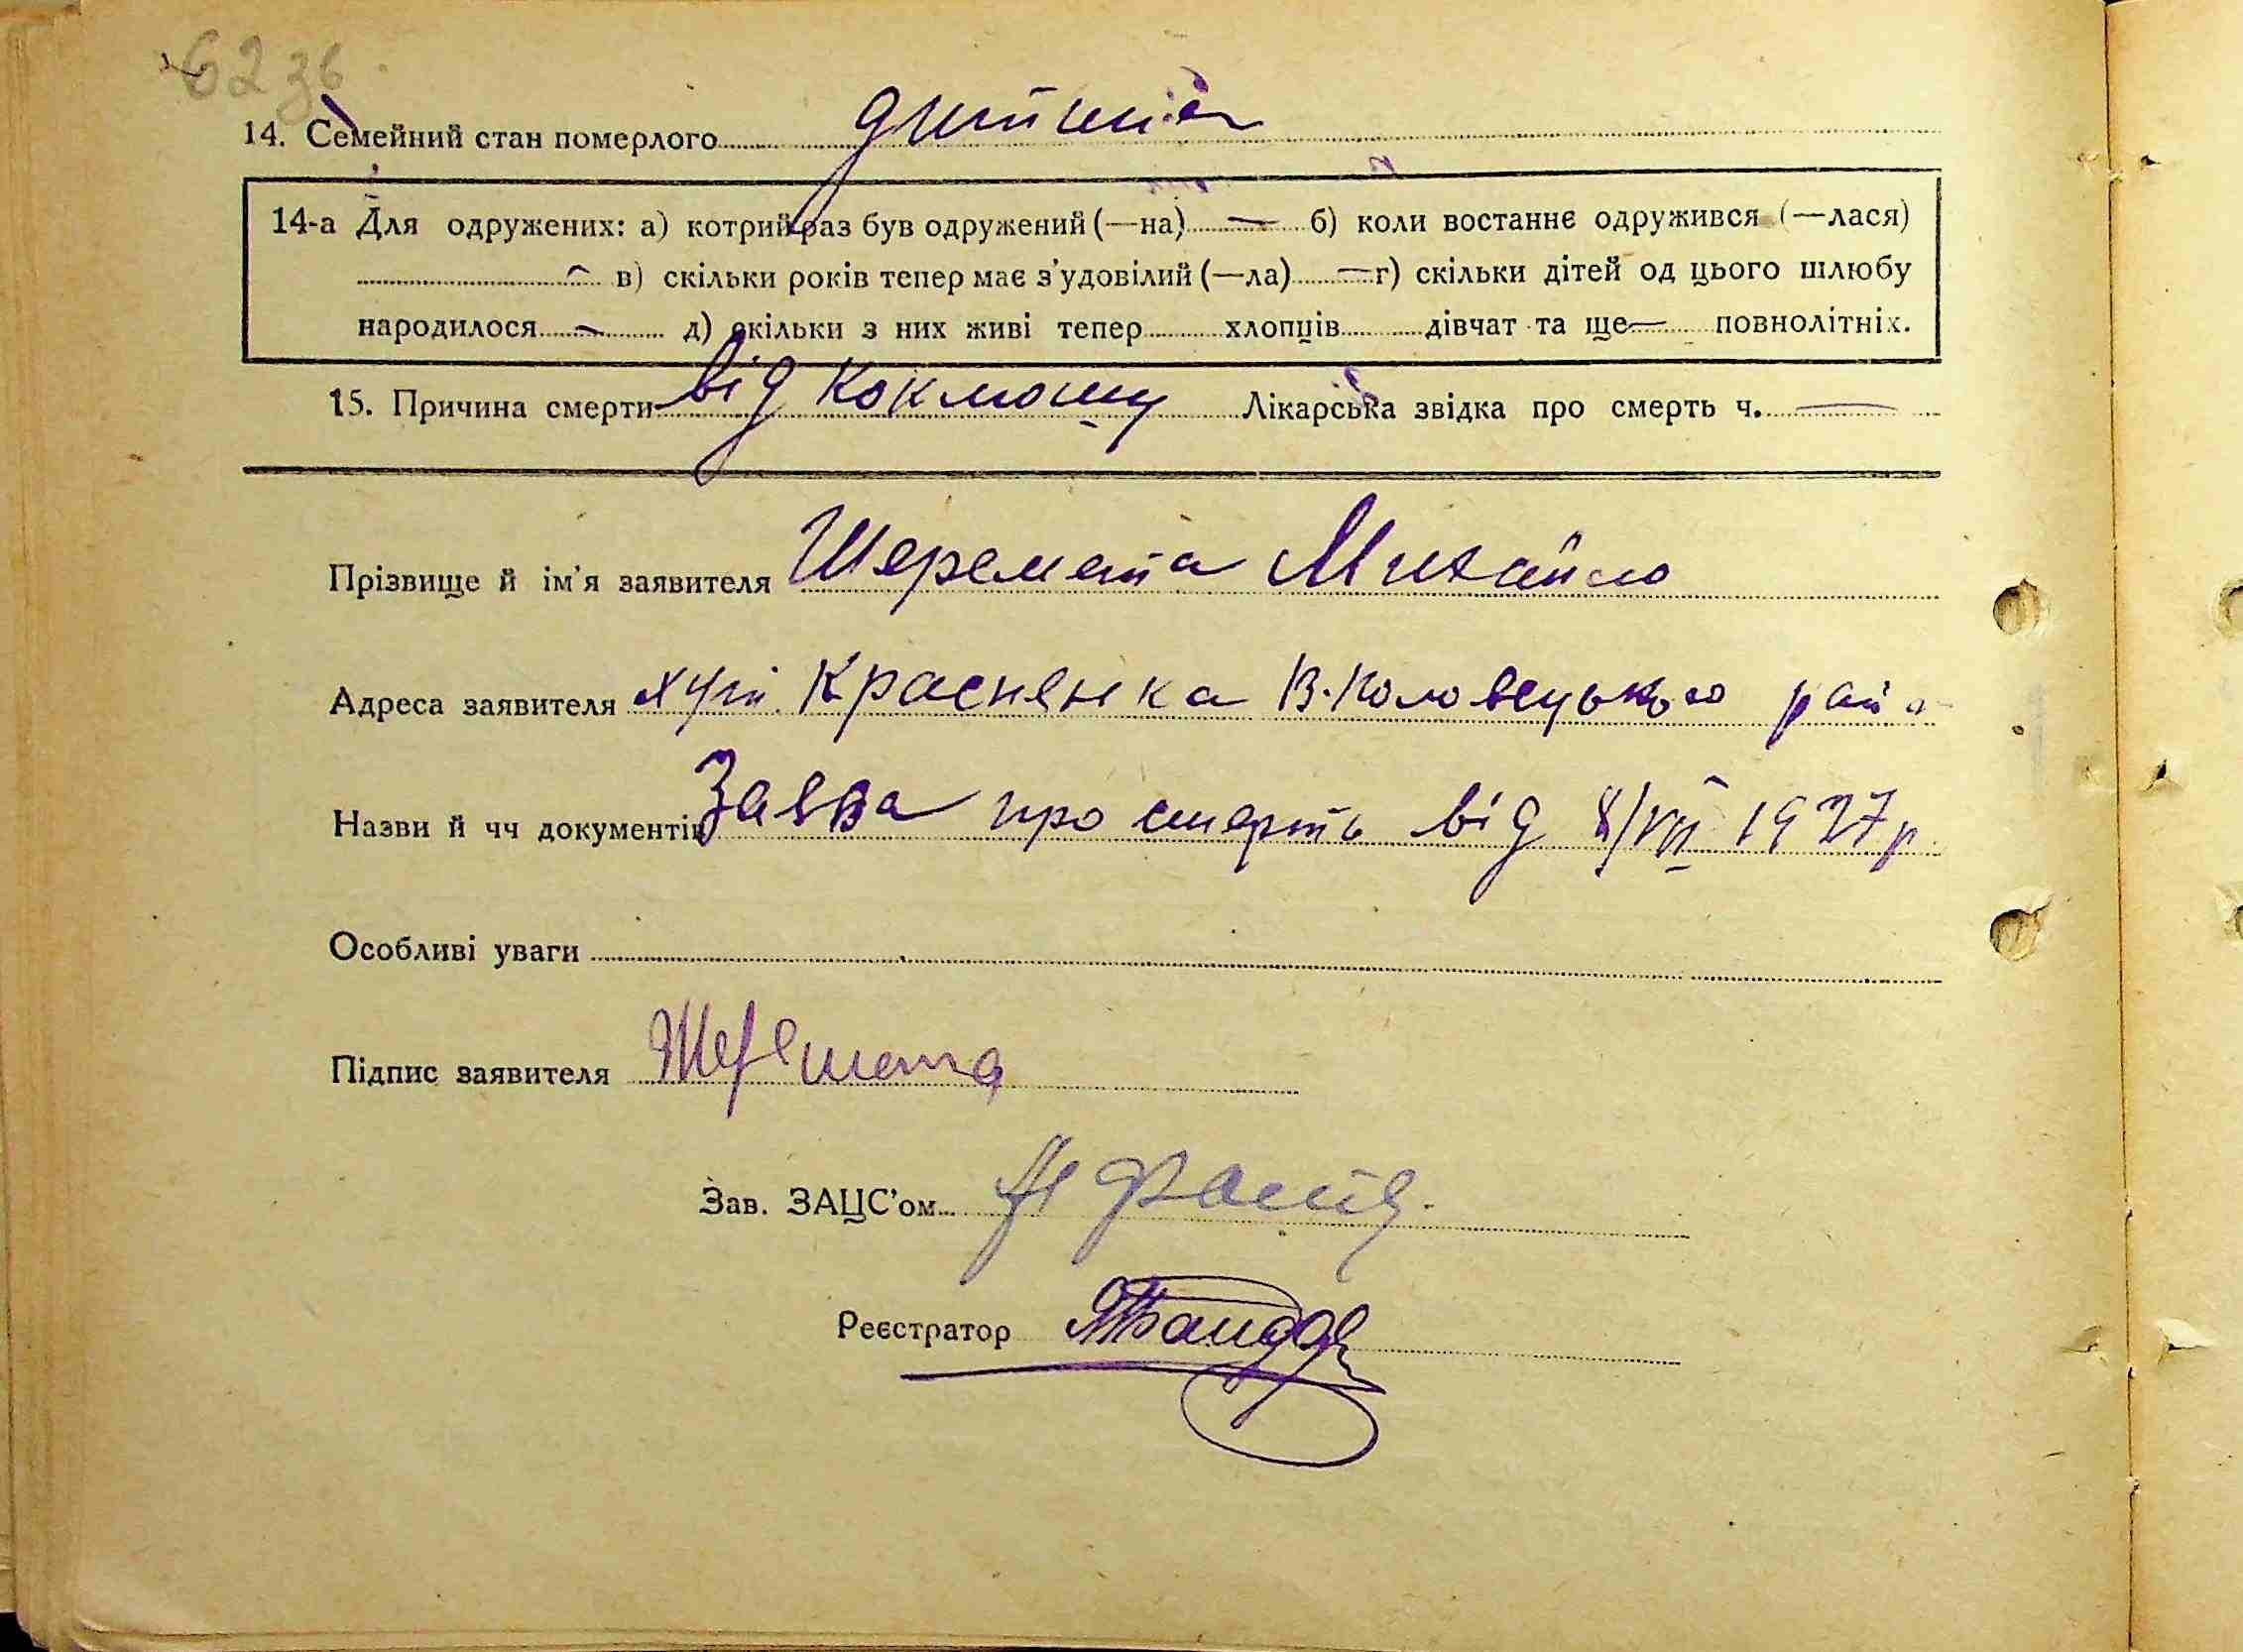 62 зв
14. Семейний стан померлого
14-а Для одружених: а) котрий раз був одружений (—на) — б) коли востаннє одружився (—лася)
— в) скільки років тепер має з'удовілий (—ла) — г) скільки дітей од цього шлюбу
народилося — д) скільки з них живі тепер хлопців дівчат та ще — повнолітніх.
15. Причина смерти від коклюшу Лікарська звідка про смерть ч. —
Прізвище й ім'я заявителя Шеремета Михайло
Адреса заявителя хут. Краснянка В.Половецького рай
Назви й чч документів Заява про смерть від 8/VII 1927 р
Особливі уваги
Підпис заявителя Шеремета
Зав. ЗАЦС'ом
Реєстратор